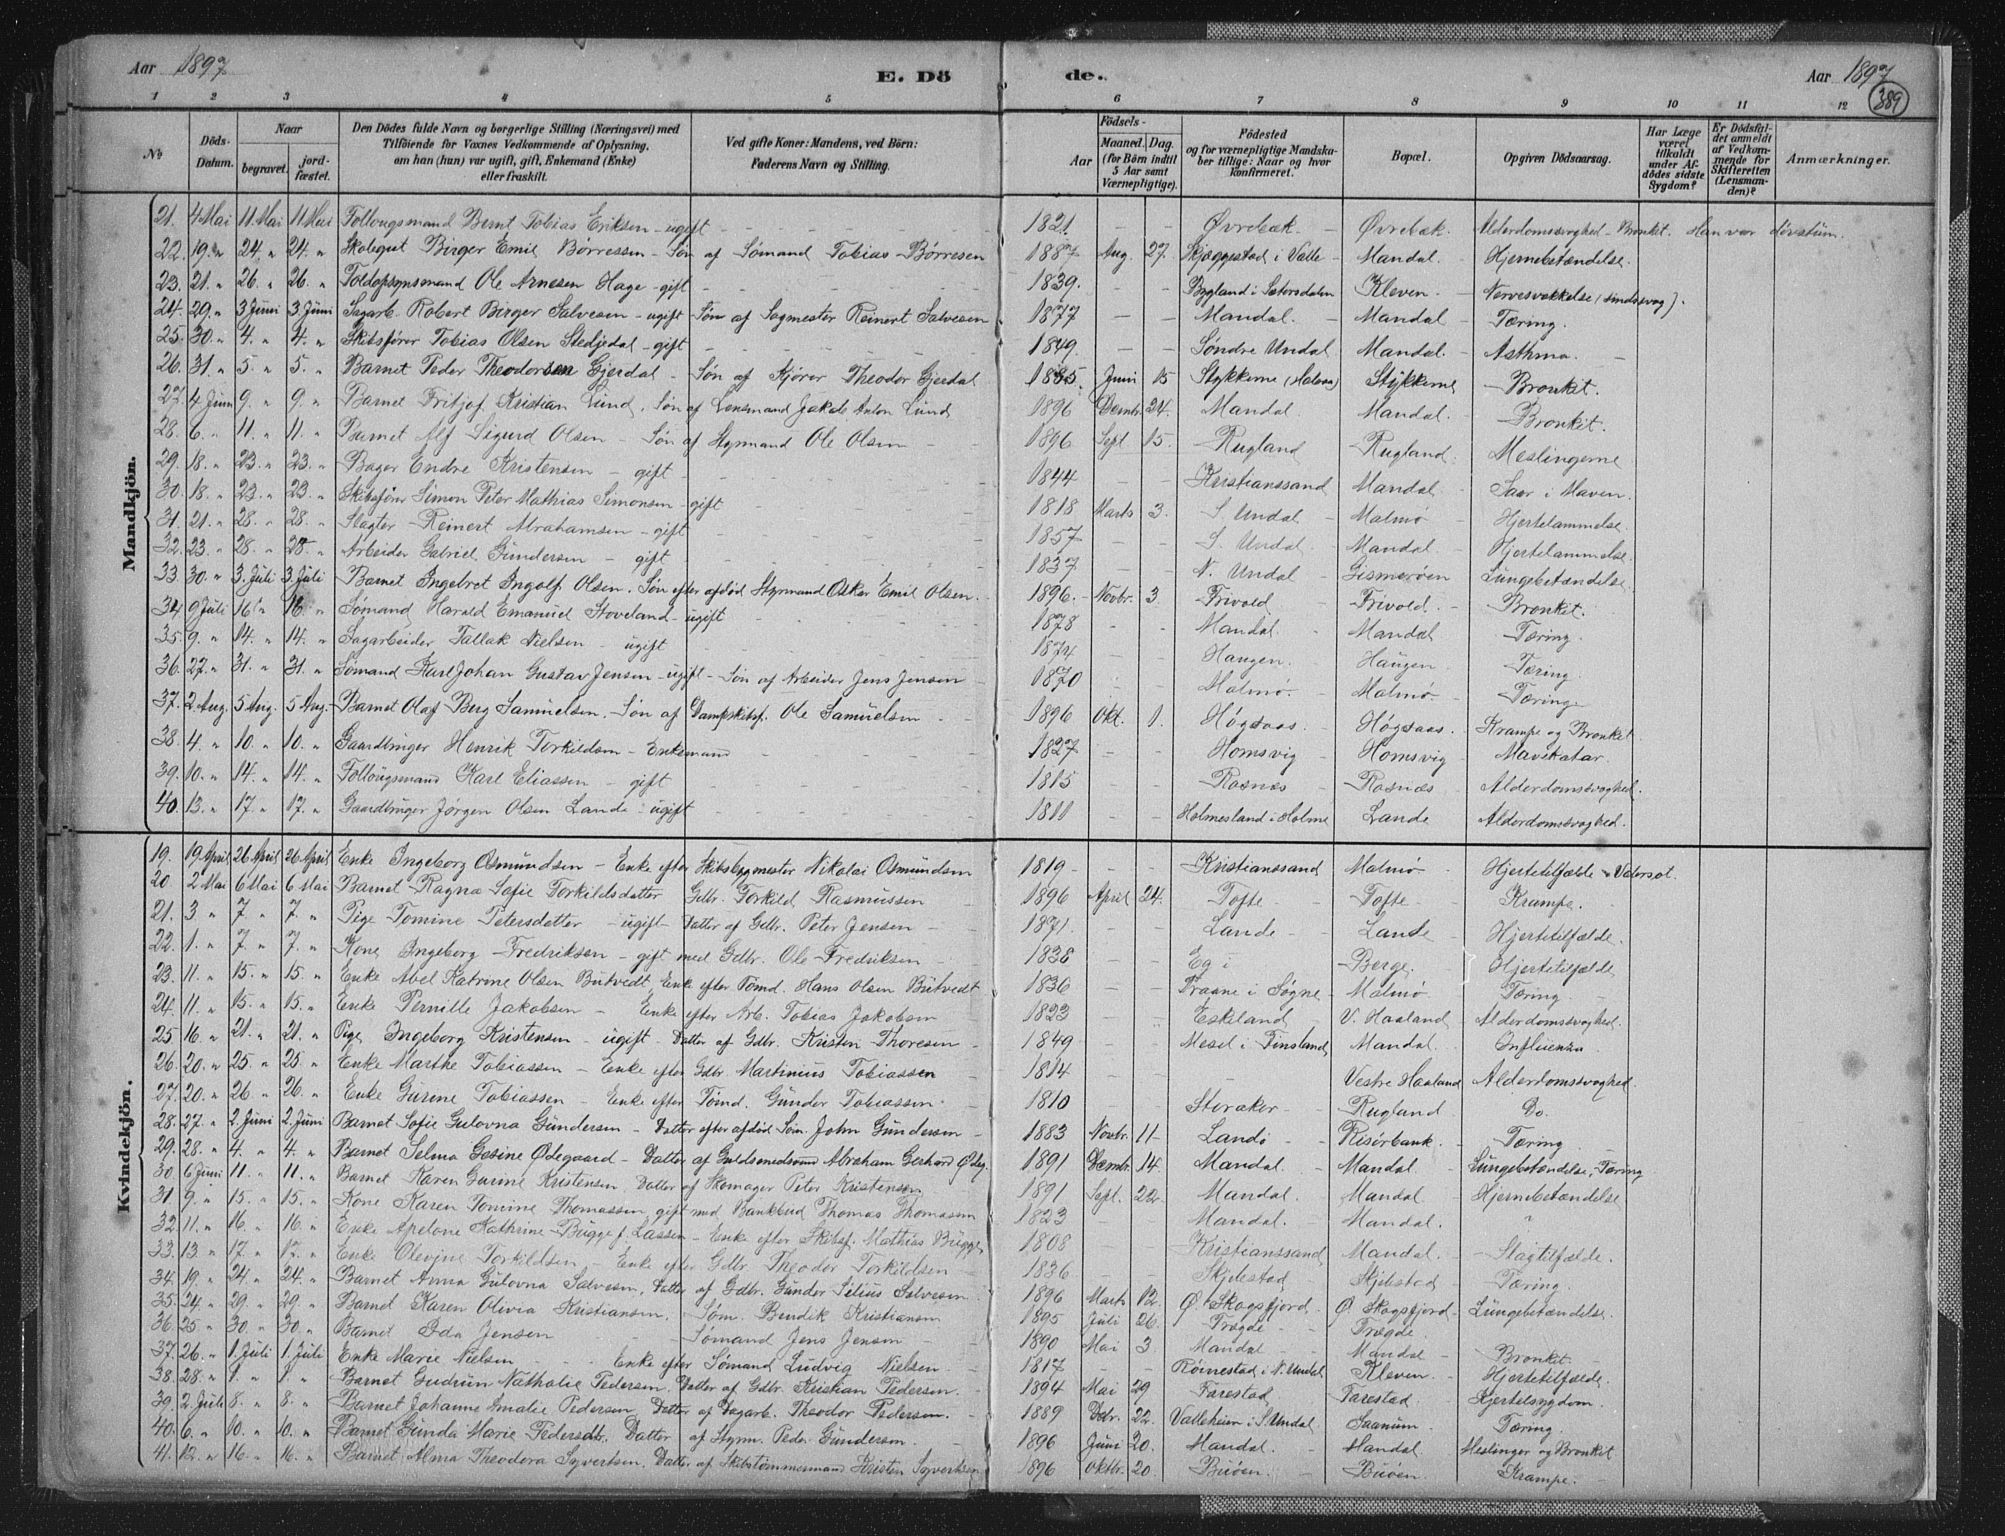 Aar 1897 E. Dö de. Aar 1897
389
1 2 3 4 5 6 7 8 9 10 11 12
No Döds-Datum. Naar begravet. jord-fæstet. Den Dödes fulde Navn og borgerlige Stilling (Næringsvei) med Tilföiende for Voxnes Vedkommende af Oplysning, om han (hun) var ugift, gift, Enkemand (Enke) eller fraskilt. Ved gifte Koner: Mandens, ved Börn: Faderens Navn og Stilling. Födsels- Aar Maaned. Dag. (for Börn indtil 5 Aar samt Værnepligtige). Födested og for værnepligtige Mandskaber tillige: Naar og hvor konfirmeret. Bopæl. Opgiven Dödsaarsag. Har Læge været tilkaldt under Afdödes sidste Sygdom? Er Dödsfaldet anmeldt af Vedkommende for Skifteretten (Lensmanden)? Anmærkninger.
Mandkjön.
21. 4 Mai 11 Mai 11 Mai Follougsmand Bernt Tobias Eriksen - ugift 1821. Øvrebæk. Øvrebæk. Alderdomssvaghed - Bronket. Han var døvstum.
22. 19. " 24. " 24. " Skolegut Birger Emil Børressen - Søn af Sømand Tobias Børresen 1887 Aug. 27. Skjæggestad i Valle Mandal. Hjernebetændelse.
23. 21. " 26. " 26. " Toldopsynsmand Ole Arnesen Hage - gift 1839. Bygland i Sætersdalen Kleven. Nervesvækkelse (sindssvag).
24. 29. " 3 Juni 3 Juni Sagarb. Robert Birger Salvesen - ugift Søn af Sagmester Reinert Salvesen 1877 Mandal. Mandal Tæring.
25. 30. " 4. " 4. " Skibsfører Tobias Olsen Stedjedal - gift 1849. Søndre Undal Mandal. Asthma.
26. 31. " 5. " 5. " Barnet Peder Theodorsen Gjerdal - Søn af Kjører Theodor Gjerdal 1885. Juni 15 Stykkerne (Holum) Stykkerne Bronket.
27. 4 Juni 9. " 9. " Barnet Fritjof Kristian Lund, Søn af Lensmand Jakob Anton Lund 1896 Decmbr. 24. Mandal. Mandal. Bronket.
28. 6. " 11. " 11. " Barnet Alf Sigurd Olsen - Søn af Styrmand Ole Olsen 1896 Sept 15. Rugland Rugland. Meslingerne
29. 18. " 23. " 23. " Bager Endre Kristensen - gift 1844 Kristianssand Mandal Saar i Maven.
30. 18. " 23. " 23. " Skibsfører Simon Peter Mathias Simonsen - gift 1818 Marts 3. S. Undal Malmø Hjertelammelse.
31. 21. " 28. " 28. " Slagter Reinert Abrahamsen - gift 1857 S. Undal. Mandal. Hjertelammelse.
32. 23. " 28. " 28. " Arbeider Gabriel Gundersen - gift 1837 N. Undal Gismerøen Lungebetændelse.
33. 30. " 3. Juli 3. Juli Barnet Ingebret Ingolf Olsen. Søn efter afdød Styrmand Oskar Emil Olsen. 1896. Novbr. 3. Frivold. Frivold. Bronket.
34 9 Juli 16 " 16. " Sømand Harald Emanuel Stoveland - ugift 1878 Mandal. Mandal Tæring.
35. 9. " 14. " 14. " Sagarbeider Tallak Nielsen - ugift 1874 Haugen. Haugen Tæring.
36. 27. " 31. " 31. " Sømand Karl Johan Gustav Jensen - ugift - Søn af Arbeider Jens Jensen 1870 Malmø. Malmø Tæring
37. 2 Aug. 5 Aug. 5 Aug. Barnet Olaf Berg Samuelsen. - Søn af Dampskibsf. Ole Samuelsen 1896 Okt. 1. Høgsaas Høgsaas. Krampe og Bronket.
38. 4. " 10. " 10. " Gaardbruger Henrik Torkildsen - Enkemand 1827 Homsvig Homsvig Mavekatar.
39. 10. " 14. " 14. " Follougsmand Karl Eliassen - gift 1815 Rosnæs Rosnæs Alderdomssvaghed.
40. 13. " 17. " 17. " Gaardbruger Jørgen Olsen Lande - ugift 1811 Holmesland i Holme Lande Alderdomssvaghed.
Kvindekjön.
19. 19 April 26 April 26 April Enke Ingeborg Osmundsen - Enke efter Skibsbygmester Nikolai Osmundsen 1819 Kristianssand Malmø Hjertetilfælde - Vatersot.
20 2 Mai 6 Mai 6 Mai Barnet Ragna Sofie Torkildsdatter Gdbr. Torkild Rasmussen 1896 April 24. Tofte Tofte Krampe.
21. 3 " 7 " 7. " Pige Tomine Petersdatter - ugift Datter af Gdbr. Peter Jensen 1871. Lande Lande Hjertetilfælde.
22. 1. " 7 " 7. " Kone Ingeborg Fredriksen - gift med Gdbr. Ole Fredriksen 1838 Eg i Berge. Hjertetilfælde.
23. 11. " 15. " 15. " Enke Abel Katrine Olsen Butvedt, Enke efter Tømd. Hans Olsen Butvedt 1836 Traane i Søgne Malmø Tæring.
24. 11. " 15. " 15. " Enke Pernille Jakobsen - Enke efter Arb. Tobias Jakobsen 1823 Eskeland V. Haaland Alderdomssvaghed.
25 16. " 21. " 21. " Pige Ingeborg Kristensen - ugift. Datter af Gdbr. Kristen Thoresen 1849 Mesel i Finsland Mandal. Influenza
26. 20. " 25. " 25. " Enke Marthe Tobiassen - Enke efter Gdbr Martinius Tobiassen 1814 Vestre Haaland Alderdomssvaghed.
27. 20. " 26. " 26. " Enke Gurine Tobiassen - Enke efter Tømd. Gunder Tobiassen 1810 Storaker Rugland Do.
28. 27. " 2. Juni 2. Juni Barnet Sofie Gulovna Gundersen - Datter efter afdød Søm. John Gundersen 1883 Novbr. 11 Landø Risørbank. Tæring.
29. 28. " 4. " 4. " Barnet Selma Gesine Ødegaard - Datter af Guldsmedsvend Abraham Gerhard Ødeg. 1891 Decmbr. 14. Mandal. Mandal. Lungebetændelse, Tæring
30 6 Juni 11. " 11. " Barnet Karen Gurine Kristensen. Datter af Skomager Peter Kristensen 1891 Sept. 22. Mandal. Mandal Hjernebetændelse
31 9. " 15. " 15. " Kone Karen Tomine Thomassen, gift med Bankbud Thomas Thomassen 1823 Mandal. Mandal. "
32. 11. " 16. " 16. " Enke Apelone Kathrine Bugge f. Lassen - Enke efter Skibsf. Mathias Bugge 1808 Kristianssand Mandal. Slagtilfælde.
33. 13 " 17. " 17. " Enke Olevine Torkildsen - Enke efter Gdbr. Theodor Torkildsen 1836 Skjebstad Skjebstad Tæring.
34. 19. " 24. " 24. " Barnet Anna Gulovna Salvesen, Datter af Gdbr. Gunder Silius Salvesen 1896 Marts 12. Ø. Skogsfjord Ø. Skogsfjord Lungebetændelse.
35. 24. " 29. " 29. " Barnet Karen Olivia Kristiansen. Søm. Bendik Kristiansen 1895 Juli 26. Trægde Trægde.
36. 25 " 30. " 30. " Barnet Ida Jensen Sømand Jens Jensen 1890 Mai 3 Mandal Mandal Bronket.
37. 26. " 1. Juli 1. Juli Enke Marie Nielsen Enke efter Sømand Ludvig Nielsen 1817 Røinestad i N. Undal Kleven. Hjertetilfælde.
38. 28. " 1. " 1. " Barnet Gudrun Nathalie Pedersen. Datter af Gdbr. Kristian Pedersen. 1894 Mai 29 Farestad Farestad Hjertesygdom.
39. 2 Juli 8. " 8. " Barnet Johanne Amalie Pedersen, Datter af Dagarb. Theodor Pedersen. 1889 22. Valleheien i S. Undal Saanum Tæring
40. 6. " 10. " 10. " Barnet Gunda Marie Pedersdtr. Datter af Styrm. Peder Gundersen. 1896 Juni 20. Mandal. Mandal Meslinger og Bronket
41. 12. " 16. " 16. " Barnet Alma Theodora Syvertsen, Datter af Skibstømmermand Kristen Syvertsen 1896 Oktbr. 20. Buøen. Buøen. Krampe.